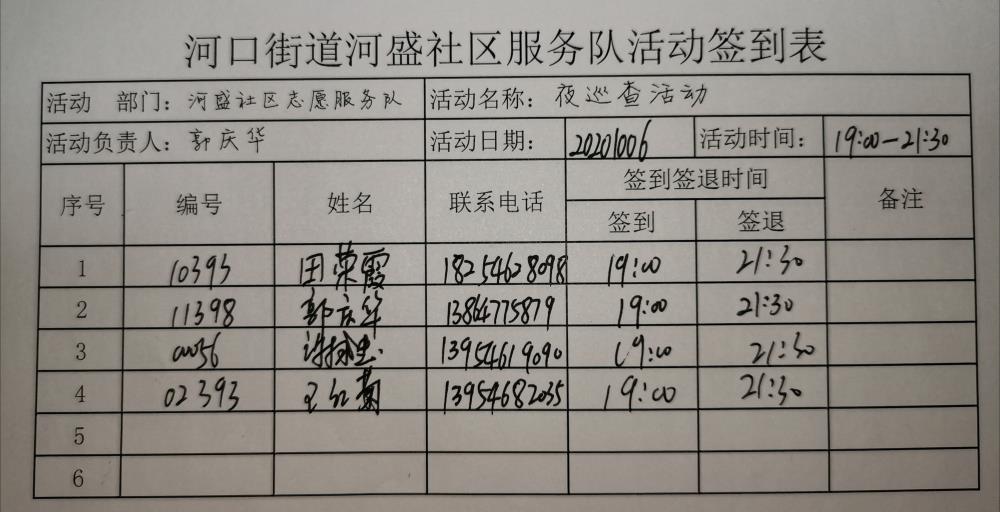 河口街道河盛社区服务队活动签到表
活动 部门：河盛社区志愿服务队 活动名称：夜巡查活动
活动负责人：郭庆华 活动日期：20201006 活动时间：19:00—21:30
序号 编号 姓名 联系电话 签到签退时间 备注
签到 签退
1 10393 田荣霞 18254628098 19:00 21:30
2 11398 郭庆华 13864775879 19:00 21:30
3 00056 13954619090 19:00 21:30
4 02393 王红菊 13954682035 19:00 21:30
5
6